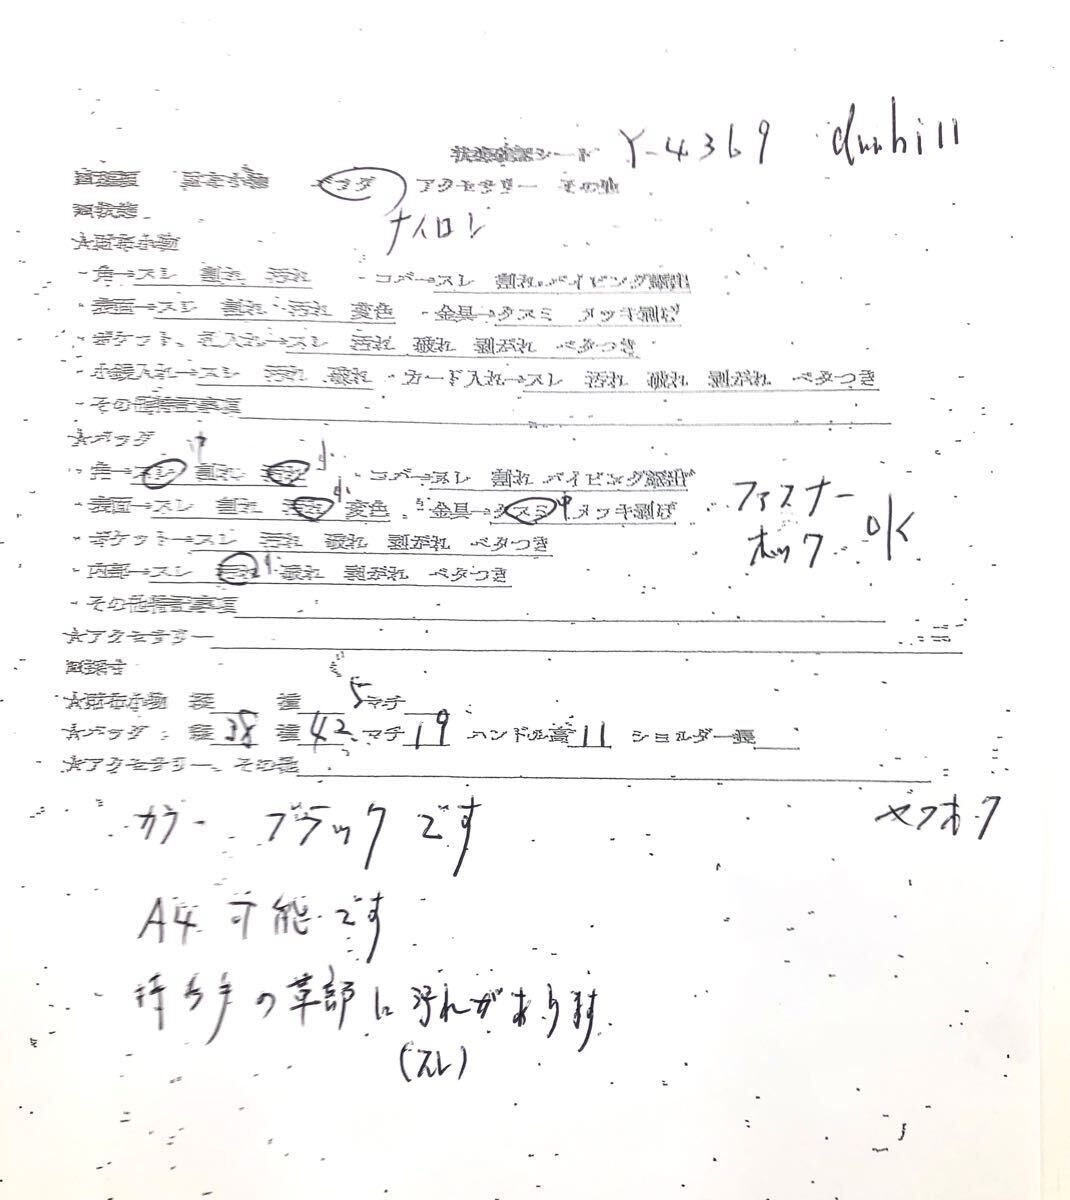 状態確認シート Y-4369 dunhill
財布小物 バッグ アクセサリー その他
ナイロン
■状態
★財布小物
・角→スレ 割れ 汚れ ・コバ→スレ 割れ パイピング露出
・表面→スレ 割れ 汚れ 変色 ・金具→クスミ メッキ剥げ
・ポケット、札入れ→スレ 汚れ 破れ 剥がれ ベタつき
・小銭入れ→スレ 汚れ 破れ ・カード入れ→スレ 汚れ 破れ 剥がれ ベタつき
・その他特記事項
★バッグ
中 小
・角→スレ 割れ 汚れ ・コバ→スレ 割れ パイピング露出
・表面→スレ 割れ 汚れ 小 変色 ・金具→クスミ 中 メッキ剥げ
ファスナー
ホック OK
・ポケット→スレ 汚れ 破れ 剥がれ ベタつき
・内部→スレ 汚れ 小 破れ 剥がれ ベタつき
・その他特記事項
★アクセサリー
■採寸
★財布小物 縦 横 マチ
★バッグ 縦 38 横 42.5 マチ 19 ハンドル高 11 ショルダー長
★アクセサリー、その他
カラー ブラックです
ヤフオク
A4 可能です
持ち手の革部に汚れがあります
(スレ)